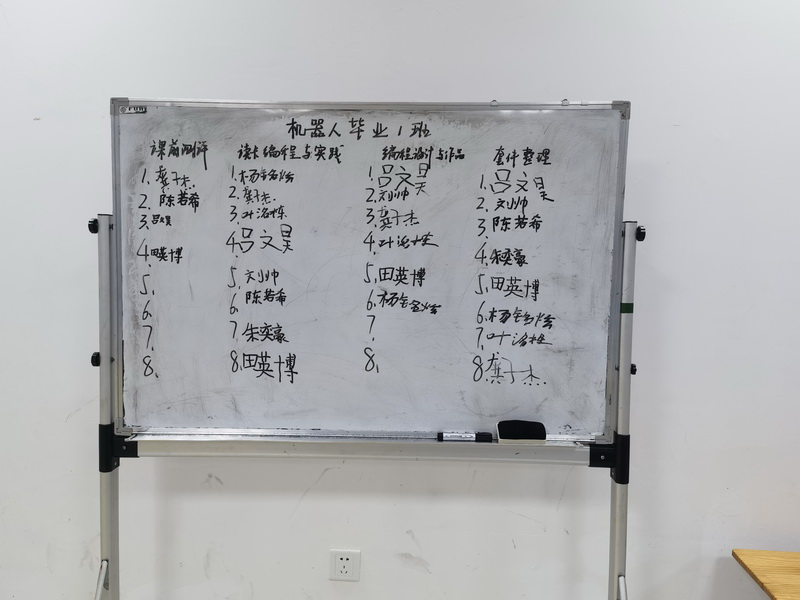 机器人毕业1班
课前测评 读卡编程与实践 编程设计与作品 套件整理
1. 龚子杰 1. 杨 1. 吕文昊 1. 吕文昊
2. 陈若希 2. 龚子杰 2. 刘帅 2. 刘帅
3. 吕文昊 3. 叶 3. 龚子杰 3. 陈若希
4. 田英博 4. 吕文昊 4. 叶 4. 朱奕豪
5. 5. 刘帅 5. 田英博 5. 田英博
6. 6. 陈若希 6. 杨 6. 杨
7. 7. 朱奕豪 7 7. 叶
8. 8. 田英博 8. 8 龚子杰